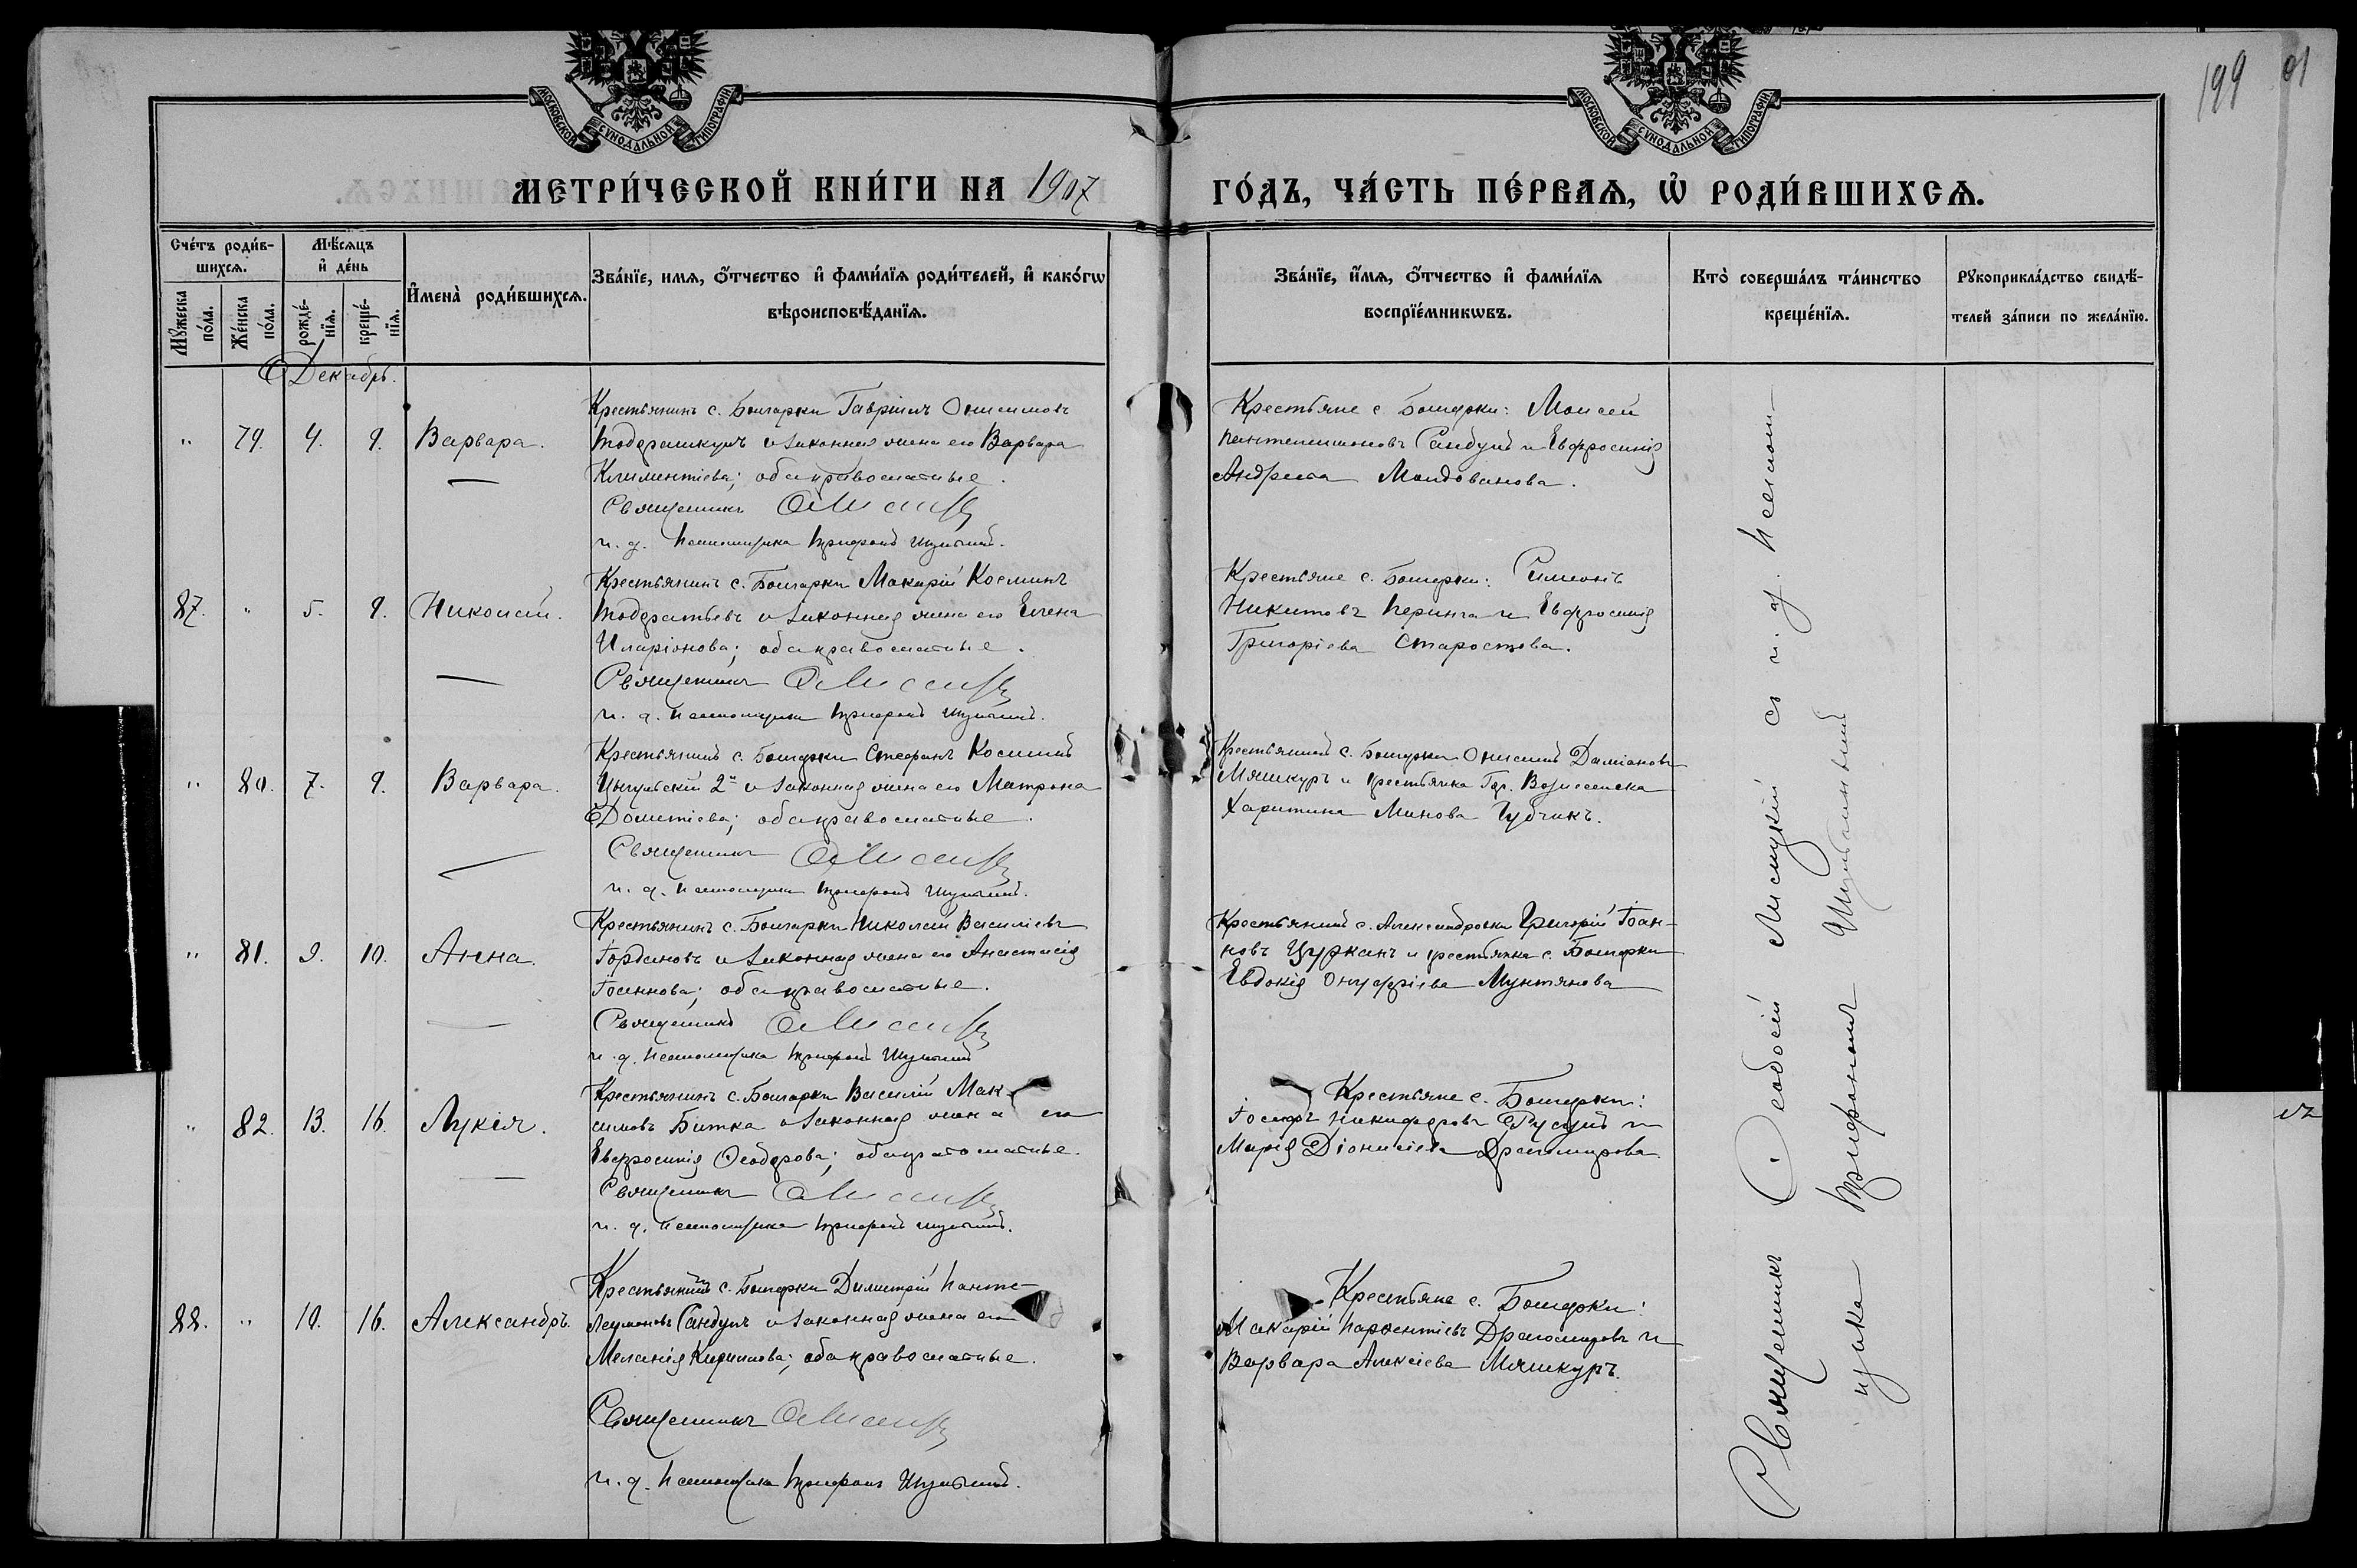 199
МОСКОВСКОЙ СУНОДАЛЬНОЙ ТИПОГРАФІИ
МОСКОВСКОЙ СУНОДАЛЬНОЙ ТИПОГРАФІИ
МЕТРИ́ЧЕСКОЙ КНИ́ГИ НА 1907
ГО́ДЪ, ЧА́СТЬ ПЕ́РВАѦ, Ѡ҆ РОДИ́ВШИХСѦ.
Сче́тъ роди́в-
шихсѧ.
Мѣ́сѧцъ
и҆ де́нь
Мꙋ́жеска
по́ла.
Же́нска
по́ла.
рожде́-
нїѧ.
креще́-
нїѧ.
И҆мена̀ роди́вшихсѧ.
Зва́нїе, имѧ, ѻ҆́тчество и҆ фами́лїѧ роди́телей, и҆ како́гѡ
вѣроисповѣ́данїѧ.
Зва́нїе, и҆́мѧ, ѻ҆́тчество и҆ фами́лїѧ
воспрїе́мникѡвъ.
Кто̀ соверша́лъ та́инство
креще́нїѧ.
Рꙋкоприкла́дство свидѣ́-
телей за́писи по жела́нїю.
Декабрь.
" 79. 4. 9. Варвара.
Крестьянинъ с. Болгарки Гавріилъ Онисимовъ
Тодорашкулъ и законная жена его Варвара
Климентіева; оба православные.
Священникъ
и. д. псаломщика Трифонъ
Крестьяне с. Болгарки: Моисей
Пантелимоновъ Сандулъ и Евфросинія
Андреева Молдованова.
87. " 5. 9. Николай.
Крестьянинъ с. Болгарки Макарій Косминъ
Тодоратьевъ и законная жена его Елена
Иларіонова; оба православные.
Священникъ
и. д. псаломщика Трифонъ
Крестьяне с. Болгарки: Симеонъ
Никитовъ Перинга и Евфросинія
Григоріева Старостова.
" 80. 7. 9. Варвара.
Крестьянинъ с. Болгарки Стефанъ Косминъ
Ингульскій 2й и законная жена его Матрона
Дометіева; оба православные.
Священникъ
и. д. псаломщика Трифонъ
Крестьянинъ с. Болгарки Онисимъ Даміановъ
Мяшкуръ и крестьянка гор. Вознесенска
Харитина Минова Губчикъ.
" 81. 9. 10. Анна.
Крестьянинъ с. Болгарки Николай Василіевъ
Гордановъ и законная жена его Анастасія
Іоаннова; оба православные.
Священникъ
и. д. псаломщика Трифонъ
Крестьянинъ с. Александровки Григорій Іоан-
новъ Цурканъ и крестьянка с. Болгарки
Евдокія Онуфріева Мунтянова
" 82. 13. 16. Лукія.
Крестьянинъ с. Болгарки Василій Мак-
симовъ Битка и законная жена его
Евфросинія Ѳеодорова; оба православные.
Священникъ
и. д. псаломщика Трифонъ
Крестьяне с. Болгарки:
Іосифъ Никифоровъ Русулъ и
Марія Діонисіева Драгомирова.
88. " 10. 16. Александръ.
Крестьянинъ с. Болгарки Димитрій Панте-
леимоновъ Сандулъ и законная жена его
Меланія Кириллова; оба православные.
Священникъ
и. д. псаломщика Трифонъ
Крестьяне с. Болгарки:
Макарій Парфентіевъ Драгомировъ и
Варвара Алексіева Мяшкуръ.
Священникъ Ѳеодосій Лисицкій съ и. д. псалом-
щика Трифономъ